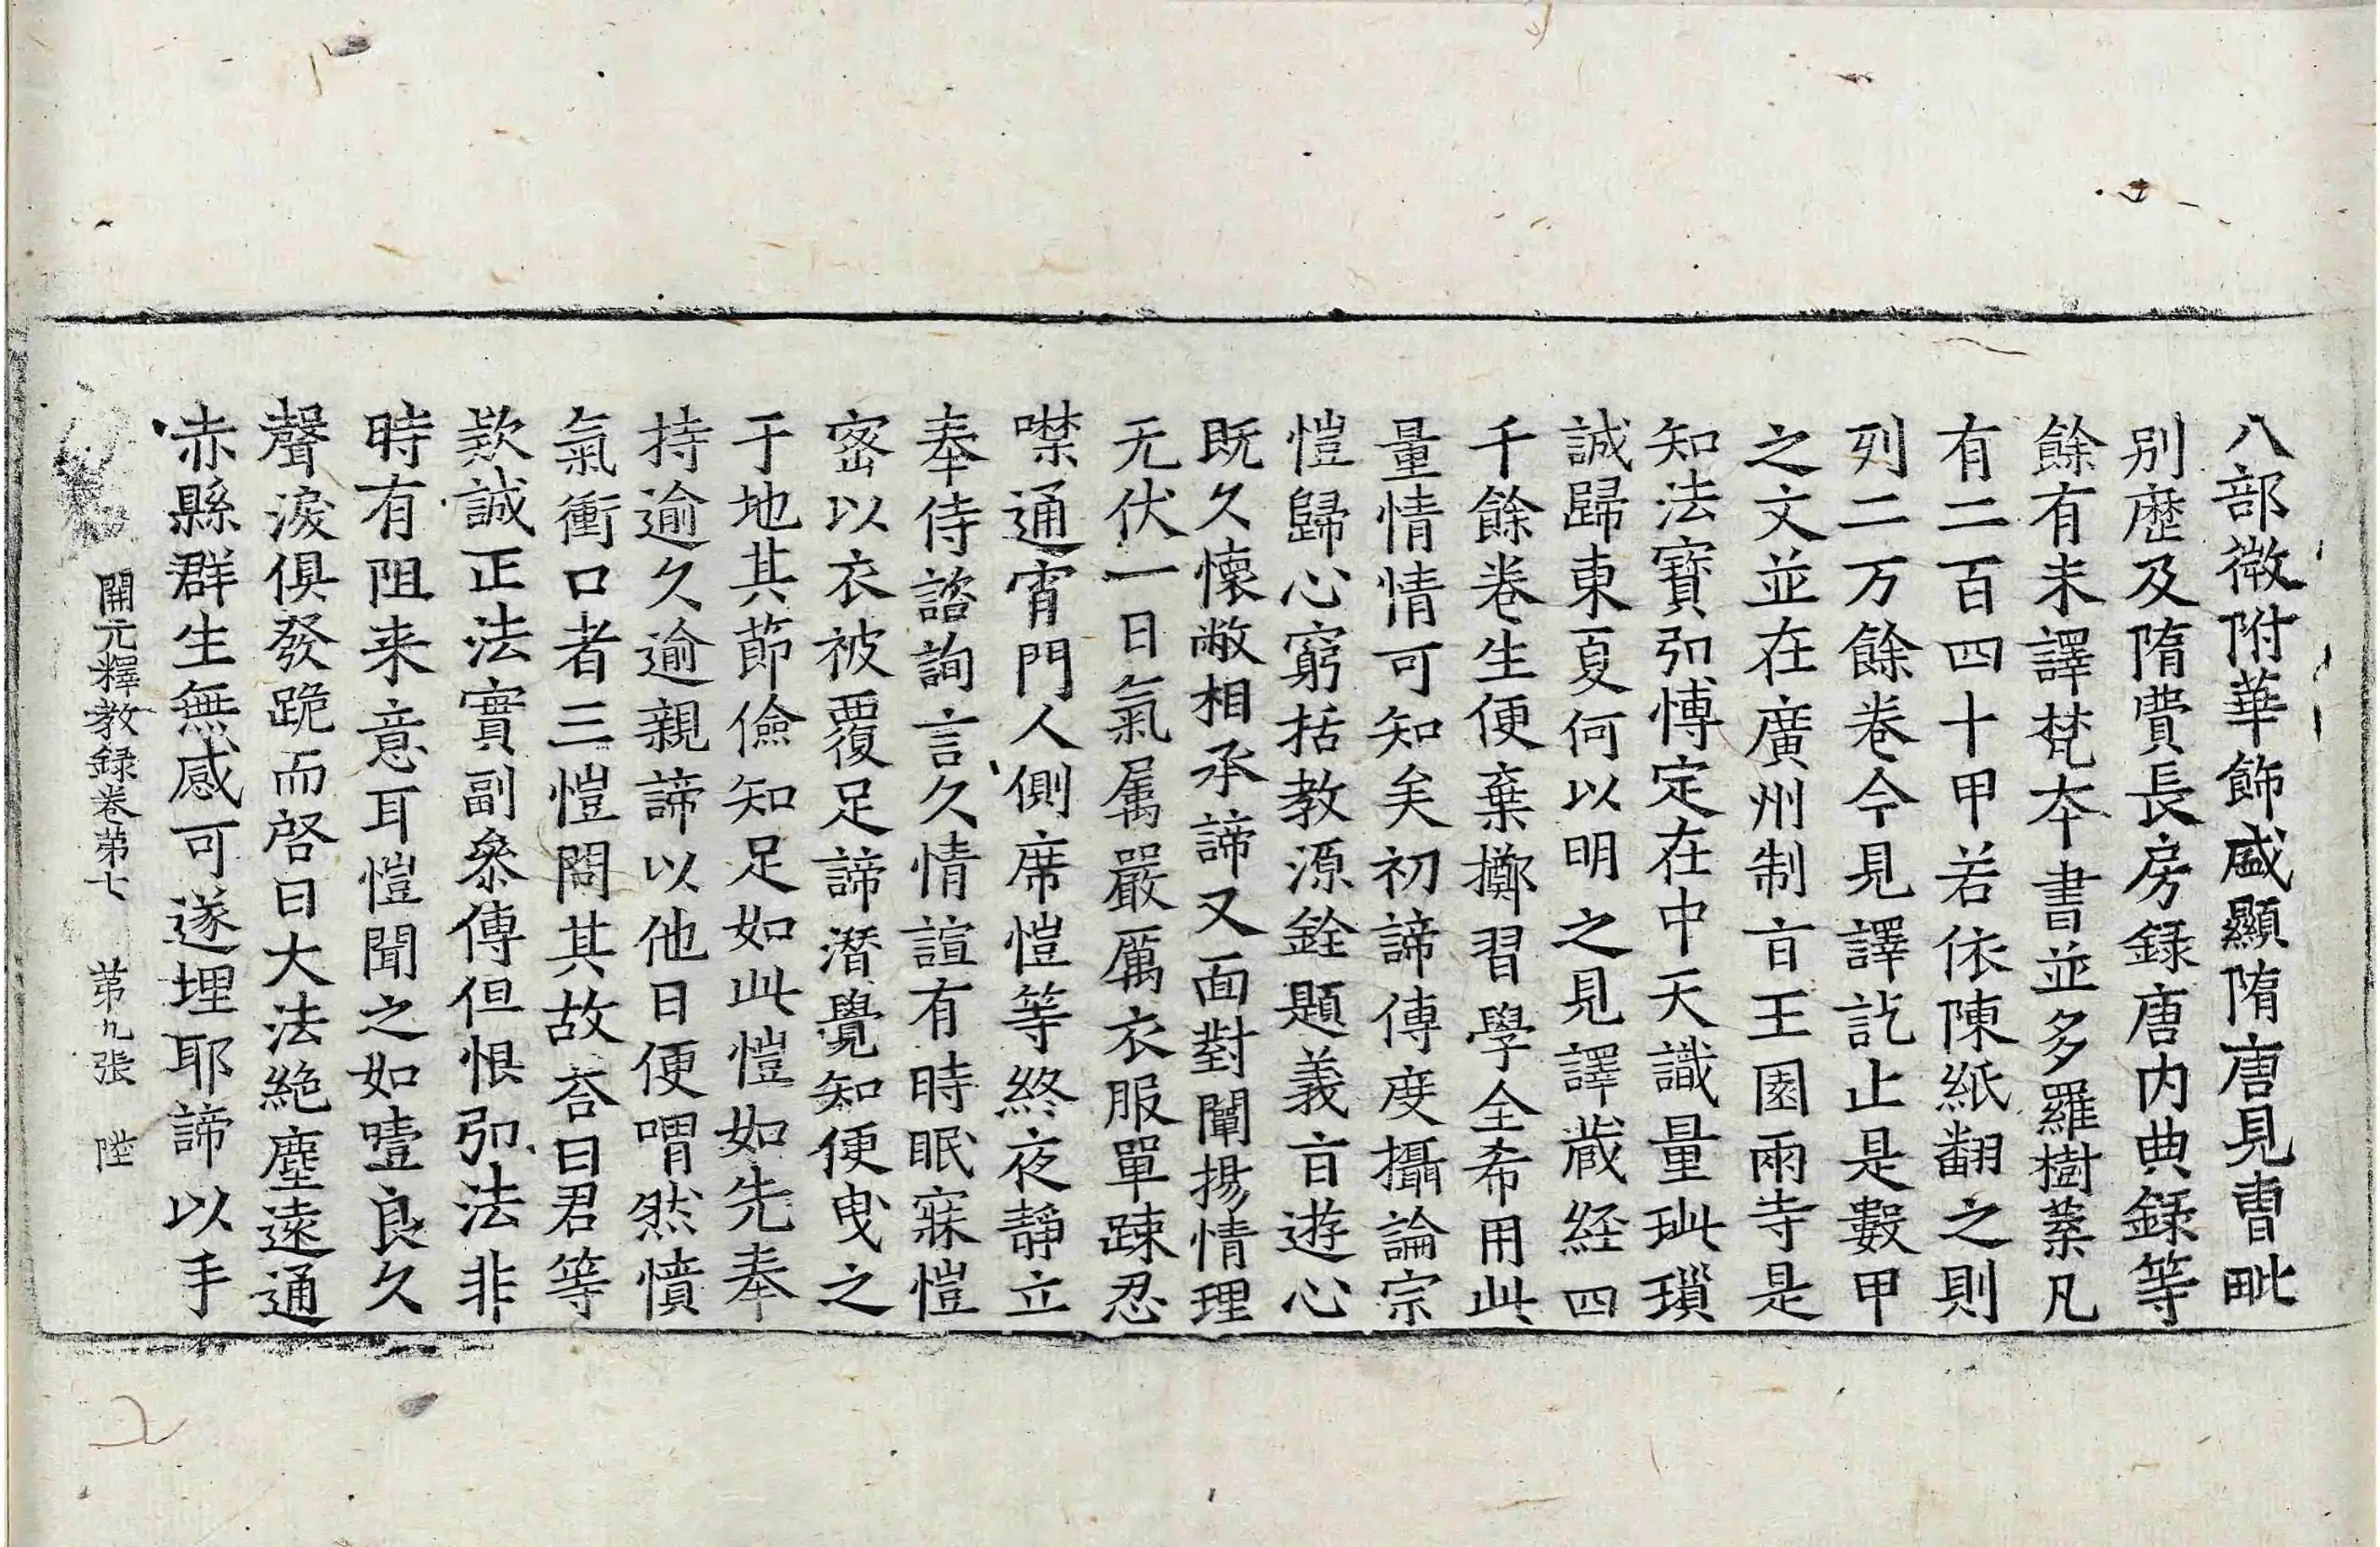 八部微附華飾盛顯隋唐見曹毗
別歷及隋費長房録唐内典録等
餘有未譯梵夲書並多羅樹葉凡
有二百四十甲若依陳紙翻之則
列二万餘卷今見譯訖止是數甲
之文並在廣州制盲王園兩寺是
知法寶弘愽定在中天識量玼璅
誠歸東夏何以明之見譯蔵経四
千餘卷生便棄擲習學全希用此
量情情可知矣初諦傳度攝論宗
愷歸心窮括教源銓題義盲遊心
既久懐敞相承諦又面對闡揚情理
无伏一日氣属嚴厲衣服單踈忍
噤通宵門人側席愷等終夜靜立
奉侍諮詢言久情諠有時眠寐愷
宻以衣被覆足諦潛覺知便曳之
于地其節儉知足如此愷如先奉
持逾久逾親諦以他日便喟然憤
氣衝口者三愷問其故荅曰君等
欵誠正法實副叅傳但恨弘法非
時有阻来意耳愷聞之如噎良久
聲淚俱發跪而啓曰大法絶塵遠通
赤縣群生無感可遂埋耶諦以手
開元釋教録卷第七 第九張 陞